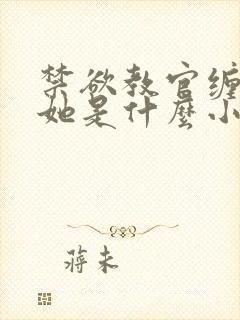 禁欲教官缠
她是什麼小
蒋未